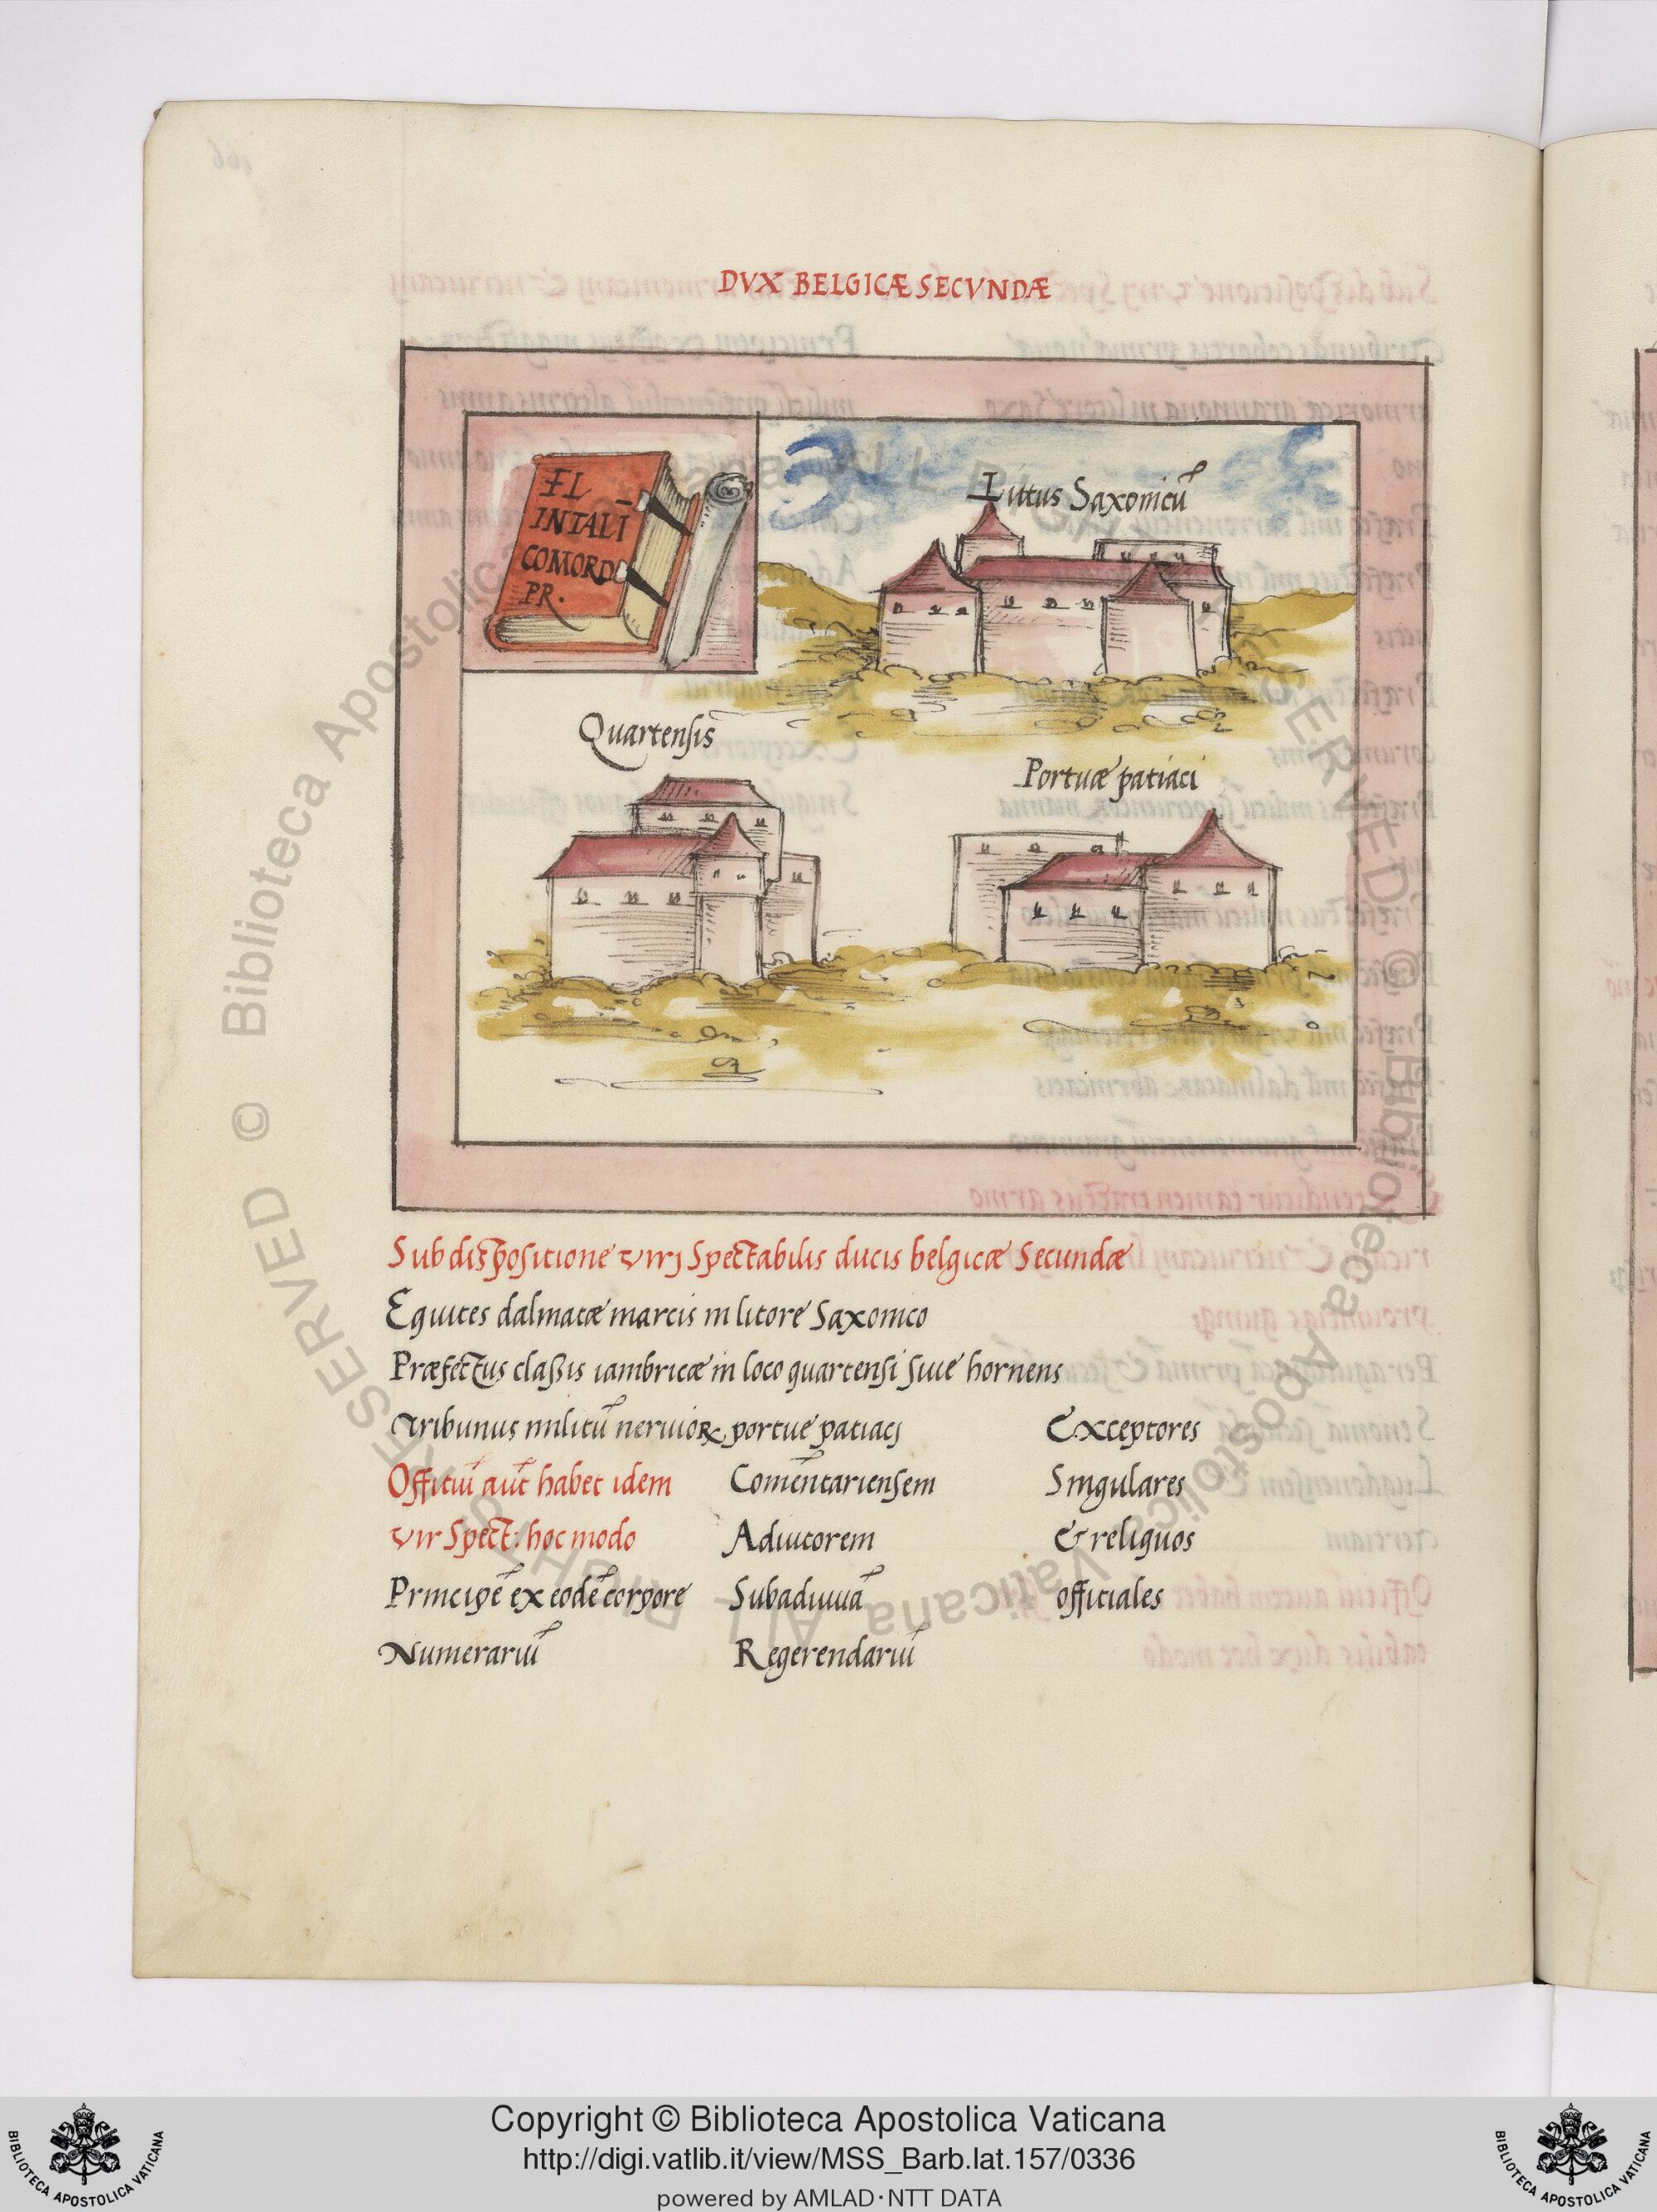 DVX BELGICÆ SECVNDÆ
FL
INTALĪ
COMORD
PR.
Littus Saxonicū
Quartensis
Portuæ patiaci
Sub dispositione virj Spectabilis ducis belgicæ Secundæ
Equites dalmatæ marcis in litore Saxonico
Præfectus classis sambricæ in loco quartensi siue hornens
Tribunus militū neruioꝝ portue patiacj
Officiū aūt habet idem
vir Spect: hoc modo
Principē ex eodē corpore
Numerariū
Comētariensem
Adiutorem
Subadiuuā
Regerendariū
Exceptores
Singulares
& reliquos
officiales
Copyright © Biblioteca Apostolica Vaticana
http://digi.vatlib.it/view/MSS_Barb.lat.157/0336
powered by AMLAD·NTT DATA
BIBLIOTECA APOSTOLICA VATICANA
BIBLIOTECA APOSTOLICA VATICANA